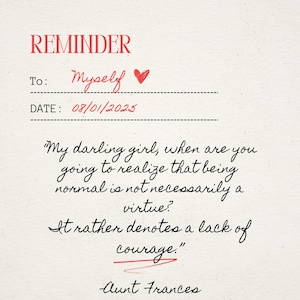 REMINDER
To: Myself
DATE: 08/01/2025
"My darling girl, when are you
going to realize that being
normal is not necessarily a
virtue?
It rather denotes a lack of
courage."
-Aunt Frances